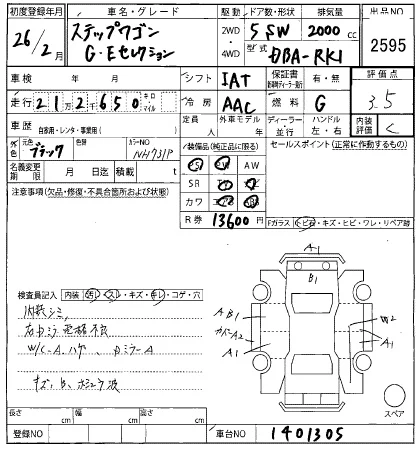 初度登録年月 車名・グレード 駆動 ドア数・形状 排気量 出品NO
26/2月 ステップワゴン G・Eセレクション 2WD 4WD 5 SW 2000 cc 2595
型式 DBA-RK1
車検 年 月 シフト IAT 保証書 有・無 評価点
走行 21万2千650 キロ・マイル 冷房 AAC 燃料 G 3.5
車歴 自家用・レンタ・事業用( ) 定員 人 外車モデル 年 ディーラー 並行 ハンドル 左・右 内装評価 C
外色 元色 ブラック 色替 カラーNO NH731P 装備品(純正品に限る) セールスポイント(正常に作動するもの)
PS AW
名義変更期限 月 日迄 積載 t SR
注意事項(欠品・修復・不具合箇所および状態) カワ
R券 13600円 Fガラス キズ・ヒビ・ワレ・リペア跡
A1
B1
検査員記入 内装 汚レ・スレ・キズ・キレ・コゲ・穴
内装シミ
AB1
カバーA2
A1
W2
A1
右ドミラー電格不良
W/C-A.ハゲ、Dミラー A
キズ、B、ホシュウ波
スペア
長さ cm 幅 cm 高さ cm
登録NO 車台NO 1401305